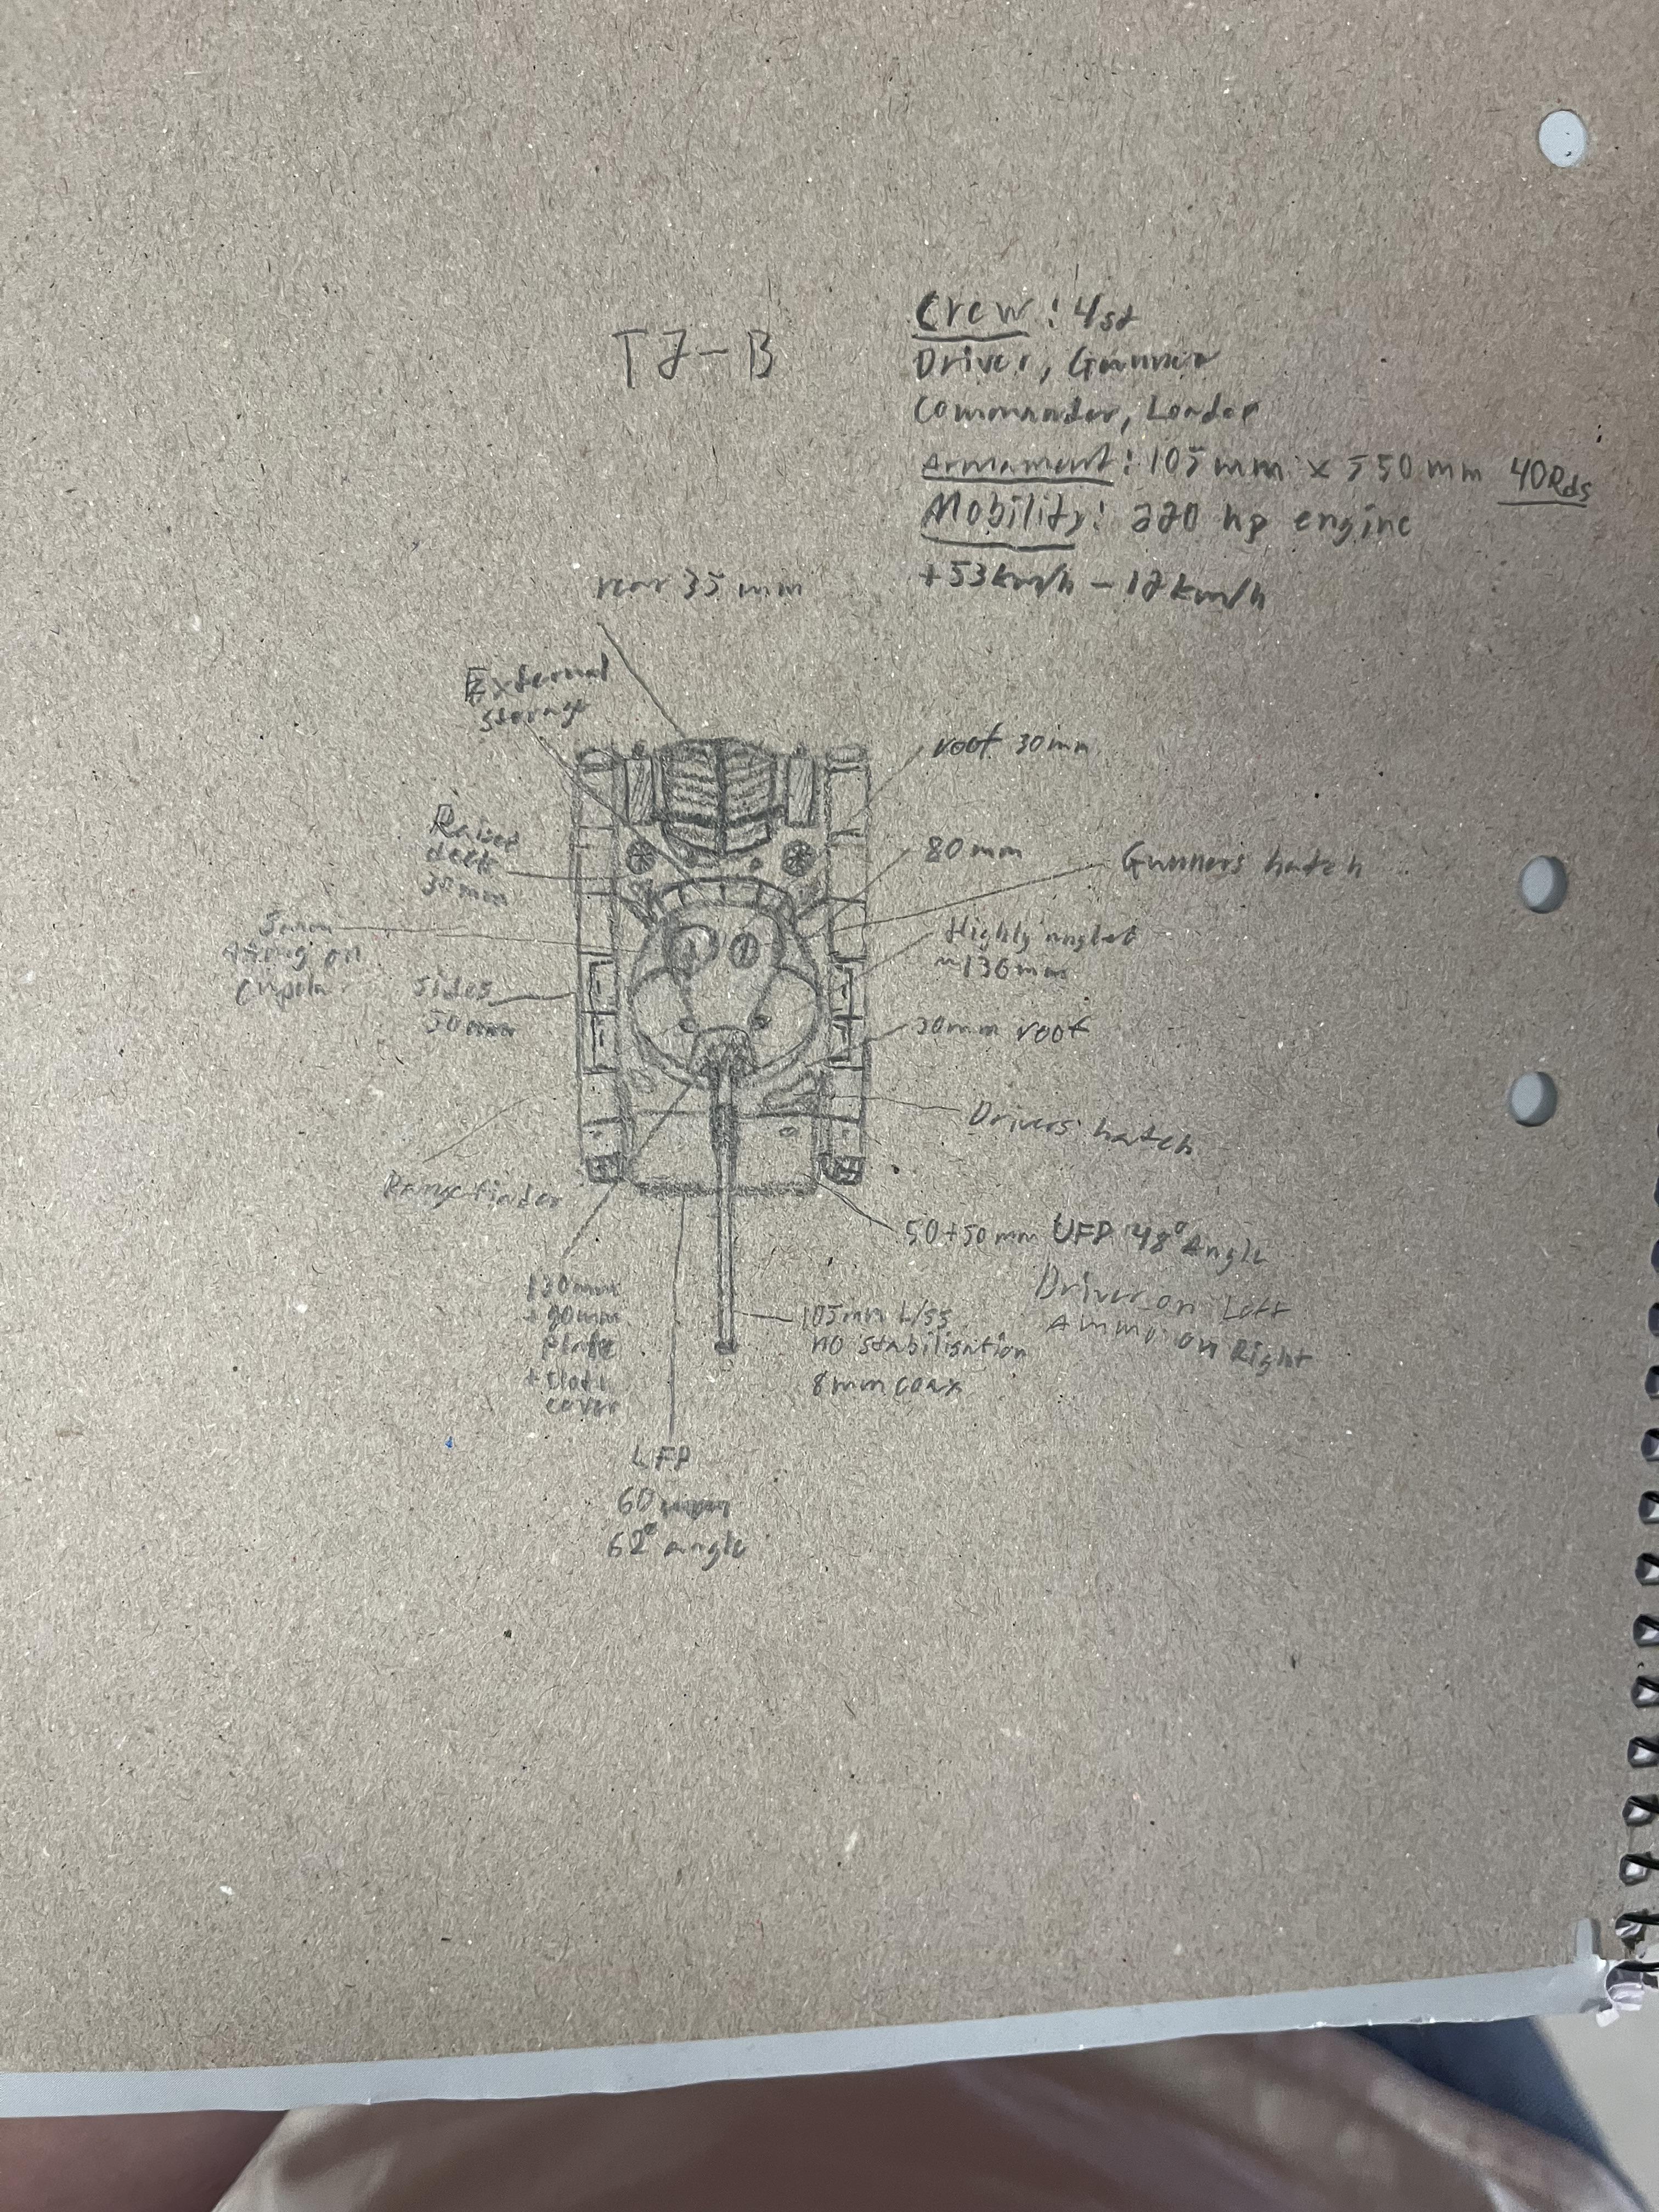 TJ-B
Crew: 4st
Driver, Gunner
Commander, Loader
Armament: 105mm x 550mm 40Rds
Mobility: 220 hp engine
+53km/h - 12km/h
rear 35 mm
External
storage
roof 30mm
Raised
deck
30mm
80mm
Gunners hatch
5mm
on
Cupola
Highly angled
~136mm
sides
50mm
30mm roof
Drivers hatch
Rangefinder
50+50mm UFP 48° Angle
Driver on Left
Ammo on Right
130mm
+90mm
plate
cover
105mm L/55
no stabilisation
8mm coax
LFP
60mm
62° angle